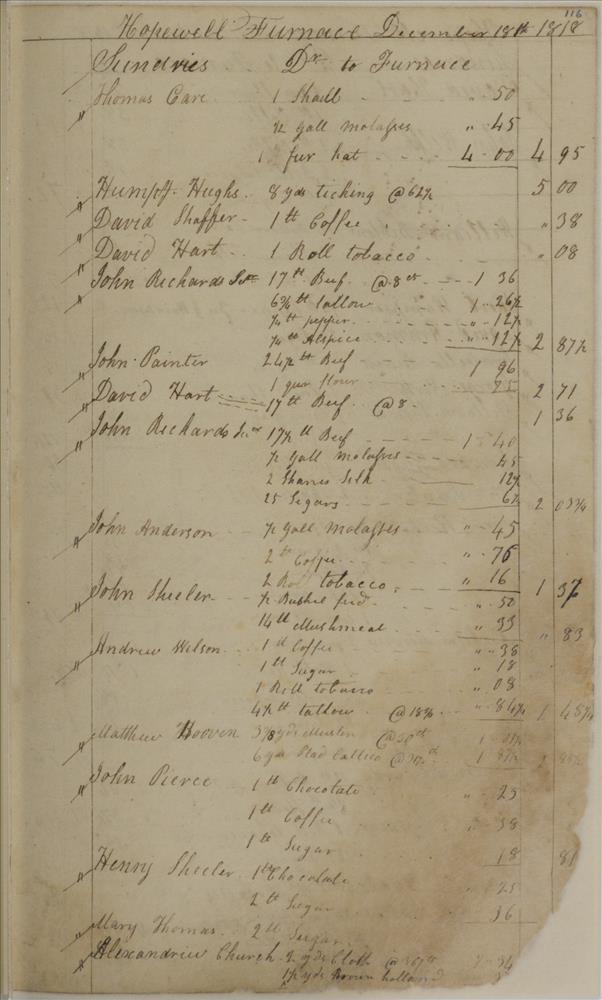 116
Hopewell Furnace December 18th 1818
Sundries Dr to Furnace
Thomas Care 1 Shall " 50
½ gall molasses " 45
1 fur hat 4 00 4 95
Humpy Hughs 8 yds ticking @ 62½ 5 00
David Shaffer 1 lb Coffee " 38
David Hart 1 Roll tobacco " 08
John Richards 17 lb Beef @ 8 cts 1 36
6¾ lb tallow 1 26½
¼ lb pepper " 12½
¼ lb Alspice " 12½ 2 87½
John Painter 24½ lb Beef 1 96
1 qur flour 75 2 71
David Hart 17 lb Beef @ 8 1 36
John Richards Jnr 17½ lb Beef 1 40
½ gall molasses 45
2 Skanes Silk 12½
25 Segars 6¼ 2 03¾
John Anderson ½ gall molasses " 45
2 lb Coffee " 76
2 Rol tobacco " 16 1 37
John Sheeler ½ Bushel feed " 50
14 lb Mushmeal " 33 " 83
Andrew Wilson 1 lb Coffee " 38
1 lb Sugar " 18
1 Roll tobacco " 08
4½ lb tallow @ 18¾ " 84½ 1 48½
Matthew Hooven 3⅜ yds Muslin @ 30 cts 1 01¼
6 yds Plad Callico @ 1 87½ 2
John Pierce 1 lb Chocolate " 25
1 lb Coffee " 38
1 lb Sugar 18 81
Henry Sheeler 1 lb Chocolate " 25
2 lb Sugar 36
Mary Thomas 2 lb Sugar
Alexandriew Church 2 yds Cloth @
1½ yds Brown holland